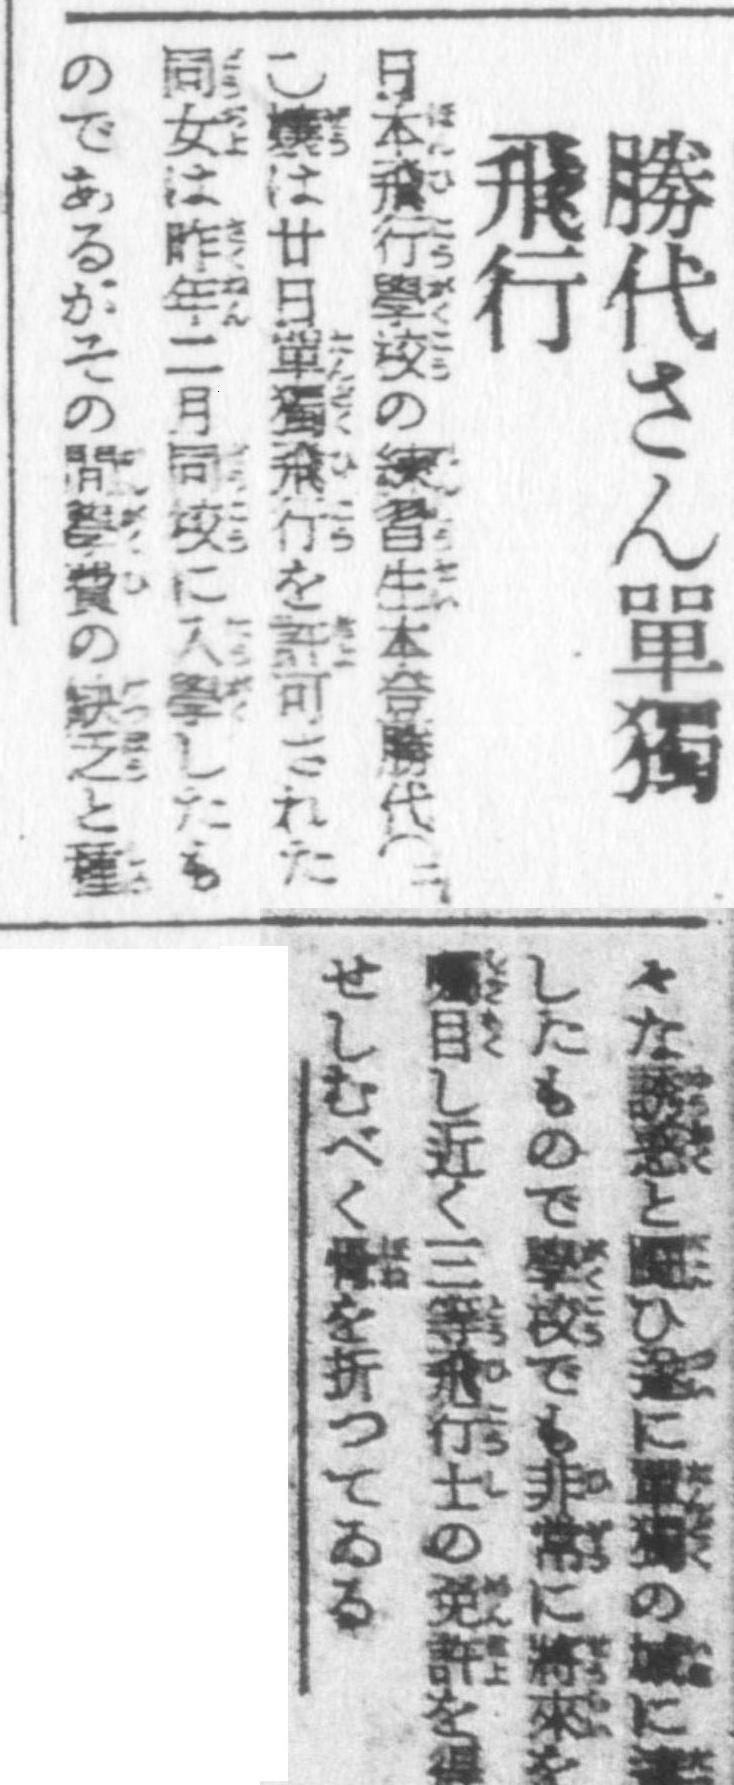 勝代さん單獨
飛行
日本飛行學校の練習生本登勝代(二
二)孃は廿日單獨飛行を許可された
同女は昨年二月同校に入學したも
のであるがその間學費の缺乏と種
々な誘惑と鬪ひ遂に單獨の域に達
したもので學校でも非常に將來を
囑目し近く三等飛行士の免許を得
せしむべく骨を折つてゐる